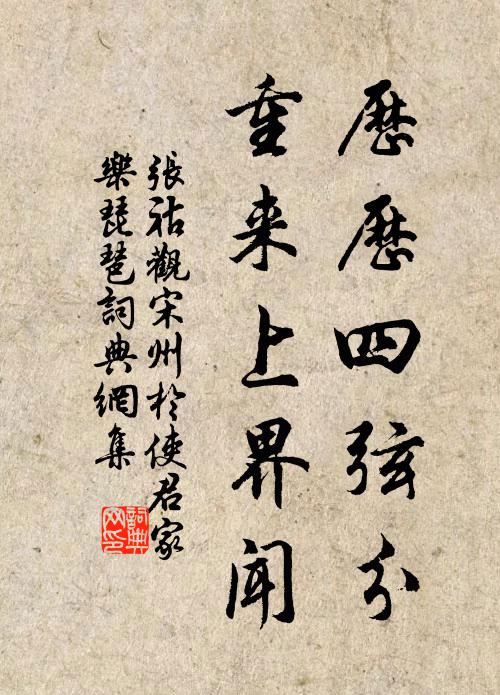 歷歷四弦分
重来上界闻
張祜觀宋州於使君家
樂琵琶詞典網集
詞典
网印